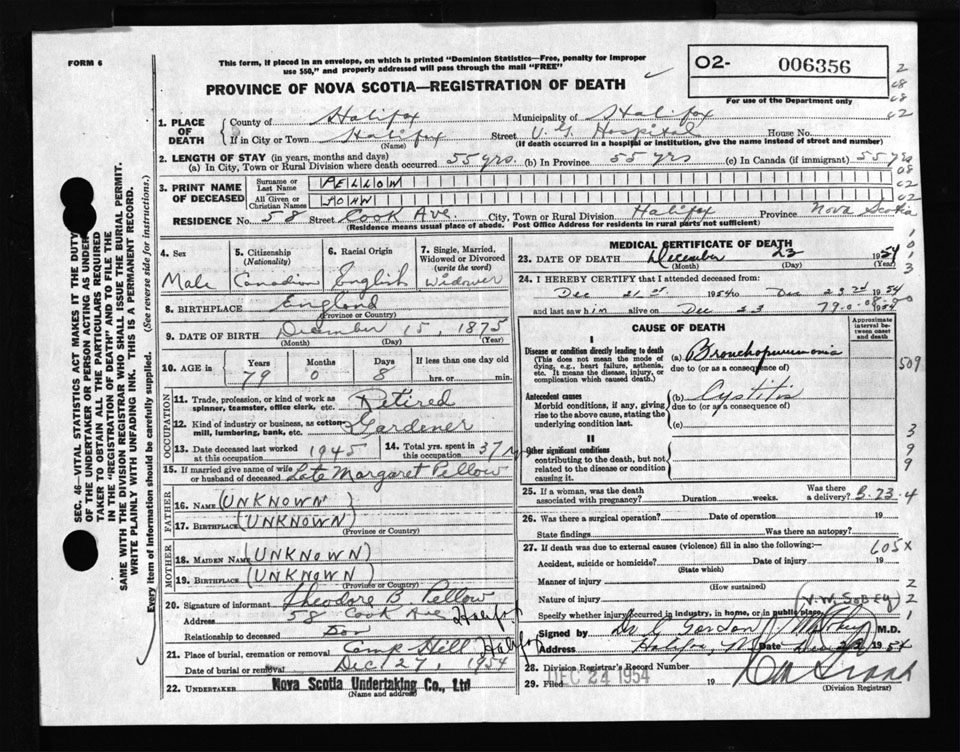 FORM 6
This form, if placed in an envelope, on which is printed "Dominion Statistics—Free, penalty for improper
use $50," and properly addressed will pass through the mail "FREE"
02- 006356
For use of the Department only
PROVINCE OF NOVA SCOTIA—REGISTRATION OF DEATH
1. PLACE OF DEATH
County of Halifax Municipality of Halifax
If in City or Town Halifax Street V. G. Hospital House No.
(Name) (If death occurred in a hospital or institution, give the name instead of street and number)
2. LENGTH OF STAY (in years, months and days)
(a) In City, Town or Rural Division where death occurred 55 yrs. (b) In Province 55 yrs (c) In Canada (if immigrant) 55 yrs
3. PRINT NAME OF DECEASED
Surname or Last Name PELLOW
All Given or Christian Names JOHN
RESIDENCE No. 58 Street Cook Ave. City, Town or Rural Division Halifax Province Nova Scotia
(Residence means usual place of abode. Post Office Address for residents in rural parts not sufficient)
4. Sex Male
5. Citizenship (Nationality) Canadian
6. Racial Origin English
7. Single, Married, Widowed or Divorced (write the word) Widower
8. BIRTHPLACE England
(Province or Country)
9. DATE OF BIRTH December 15, 1875
(Month) (Day) (Year)
10. AGE in Years 79 Months 0 Days 8 If less than one day old hrs. or min.
OCCUPATION
11. Trade, profession, or kind of work as spinner, teamster, office clerk, etc. Retired
12. Kind of industry or business, as cotton mill, lumbering, bank, etc. Gardener
13. Date deceased last worked at this occupation 1945
14. Total yrs. spent in this occupation 37
15. If married give name of wife or husband of deceased Late Margaret Pellow
FATHER
16. NAME (UNKNOWN)
17. BIRTHPLACE (UNKNOWN)
(Province or Country)
MOTHER
18. MAIDEN NAME (UNKNOWN)
19. BIRTHPLACE (UNKNOWN)
(Province or Country)
20. Signature of informant Theodore B Pellow
Address 58 Cook Ave Halifax
Relationship to deceased Son
21. Place of burial, cremation or removal Camp Hill Halifax
Date of burial or removal Dec 27, 1954
22. UNDERTAKER Nova Scotia Undertaking Co., Ltd
(Name and address)
MEDICAL CERTIFICATE OF DEATH
23. DATE OF DEATH December 23 1954
(Month) (Day) (Year)
24. I HEREBY CERTIFY that I attended deceased from:
Dec 21st. 1954 to Dec 23rd 1954
and last saw him alive on Dec 23 1954
CAUSE OF DEATH
Approximate interval between onset and death
I
Disease or condition directly leading to death
(This does not mean the mode of dying, e.g., heart failure, asthenia, etc. It means the disease, injury, or complication which caused death.)
(a) Bronchopneumonia
due to (or as a consequence of)
509
Antecedent causes
Morbid conditions, if any, giving rise to the above cause, stating the underlying condition last.
(b) Cystitis
due to (or as a consequence of)
(c)
II
Other significant conditions
contributing to the death, but not related to the disease or condition causing it.
25. If a woman, was the death associated with pregnancy? Duration weeks. Was there a delivery?
26. Was there a surgical operation? Date of operation 19
State findings Was there an autopsy?
27. If death was due to external causes (violence) fill in also the following:— 605X
Accident, suicide or homicide? Date of injury 19
(State which)
Manner of injury
(How sustained)
Nature of injury
(V.W. SOBEY)
Specify whether injury occurred in industry, in home, or in public place.
Signed by M.D.
Address Halifax, N Date Dec 23 1954
28. Division Registrar's Record Number
29. Filed DEC 24 1954 19
(Division Registrar)
SEC. 46—VITAL STATISTICS ACT MAKES IT THE DUTY
OF THE UNDERTAKER OR PERSON ACTING AS UNDERTAKER TO OBTAIN ALL THE PARTICULARS REQUIRED
IN THE "REGISTRATION OF DEATH" AND TO FILE THE
SAME WITH THE DIVISION REGISTRAR WHO SHALL ISSUE THE BURIAL PERMIT.
WRITE PLAINLY WITH UNFADING INK. THIS IS A PERMANENT RECORD.
Every item of Information should be carefully supplied. (See reverse side for instructions.)